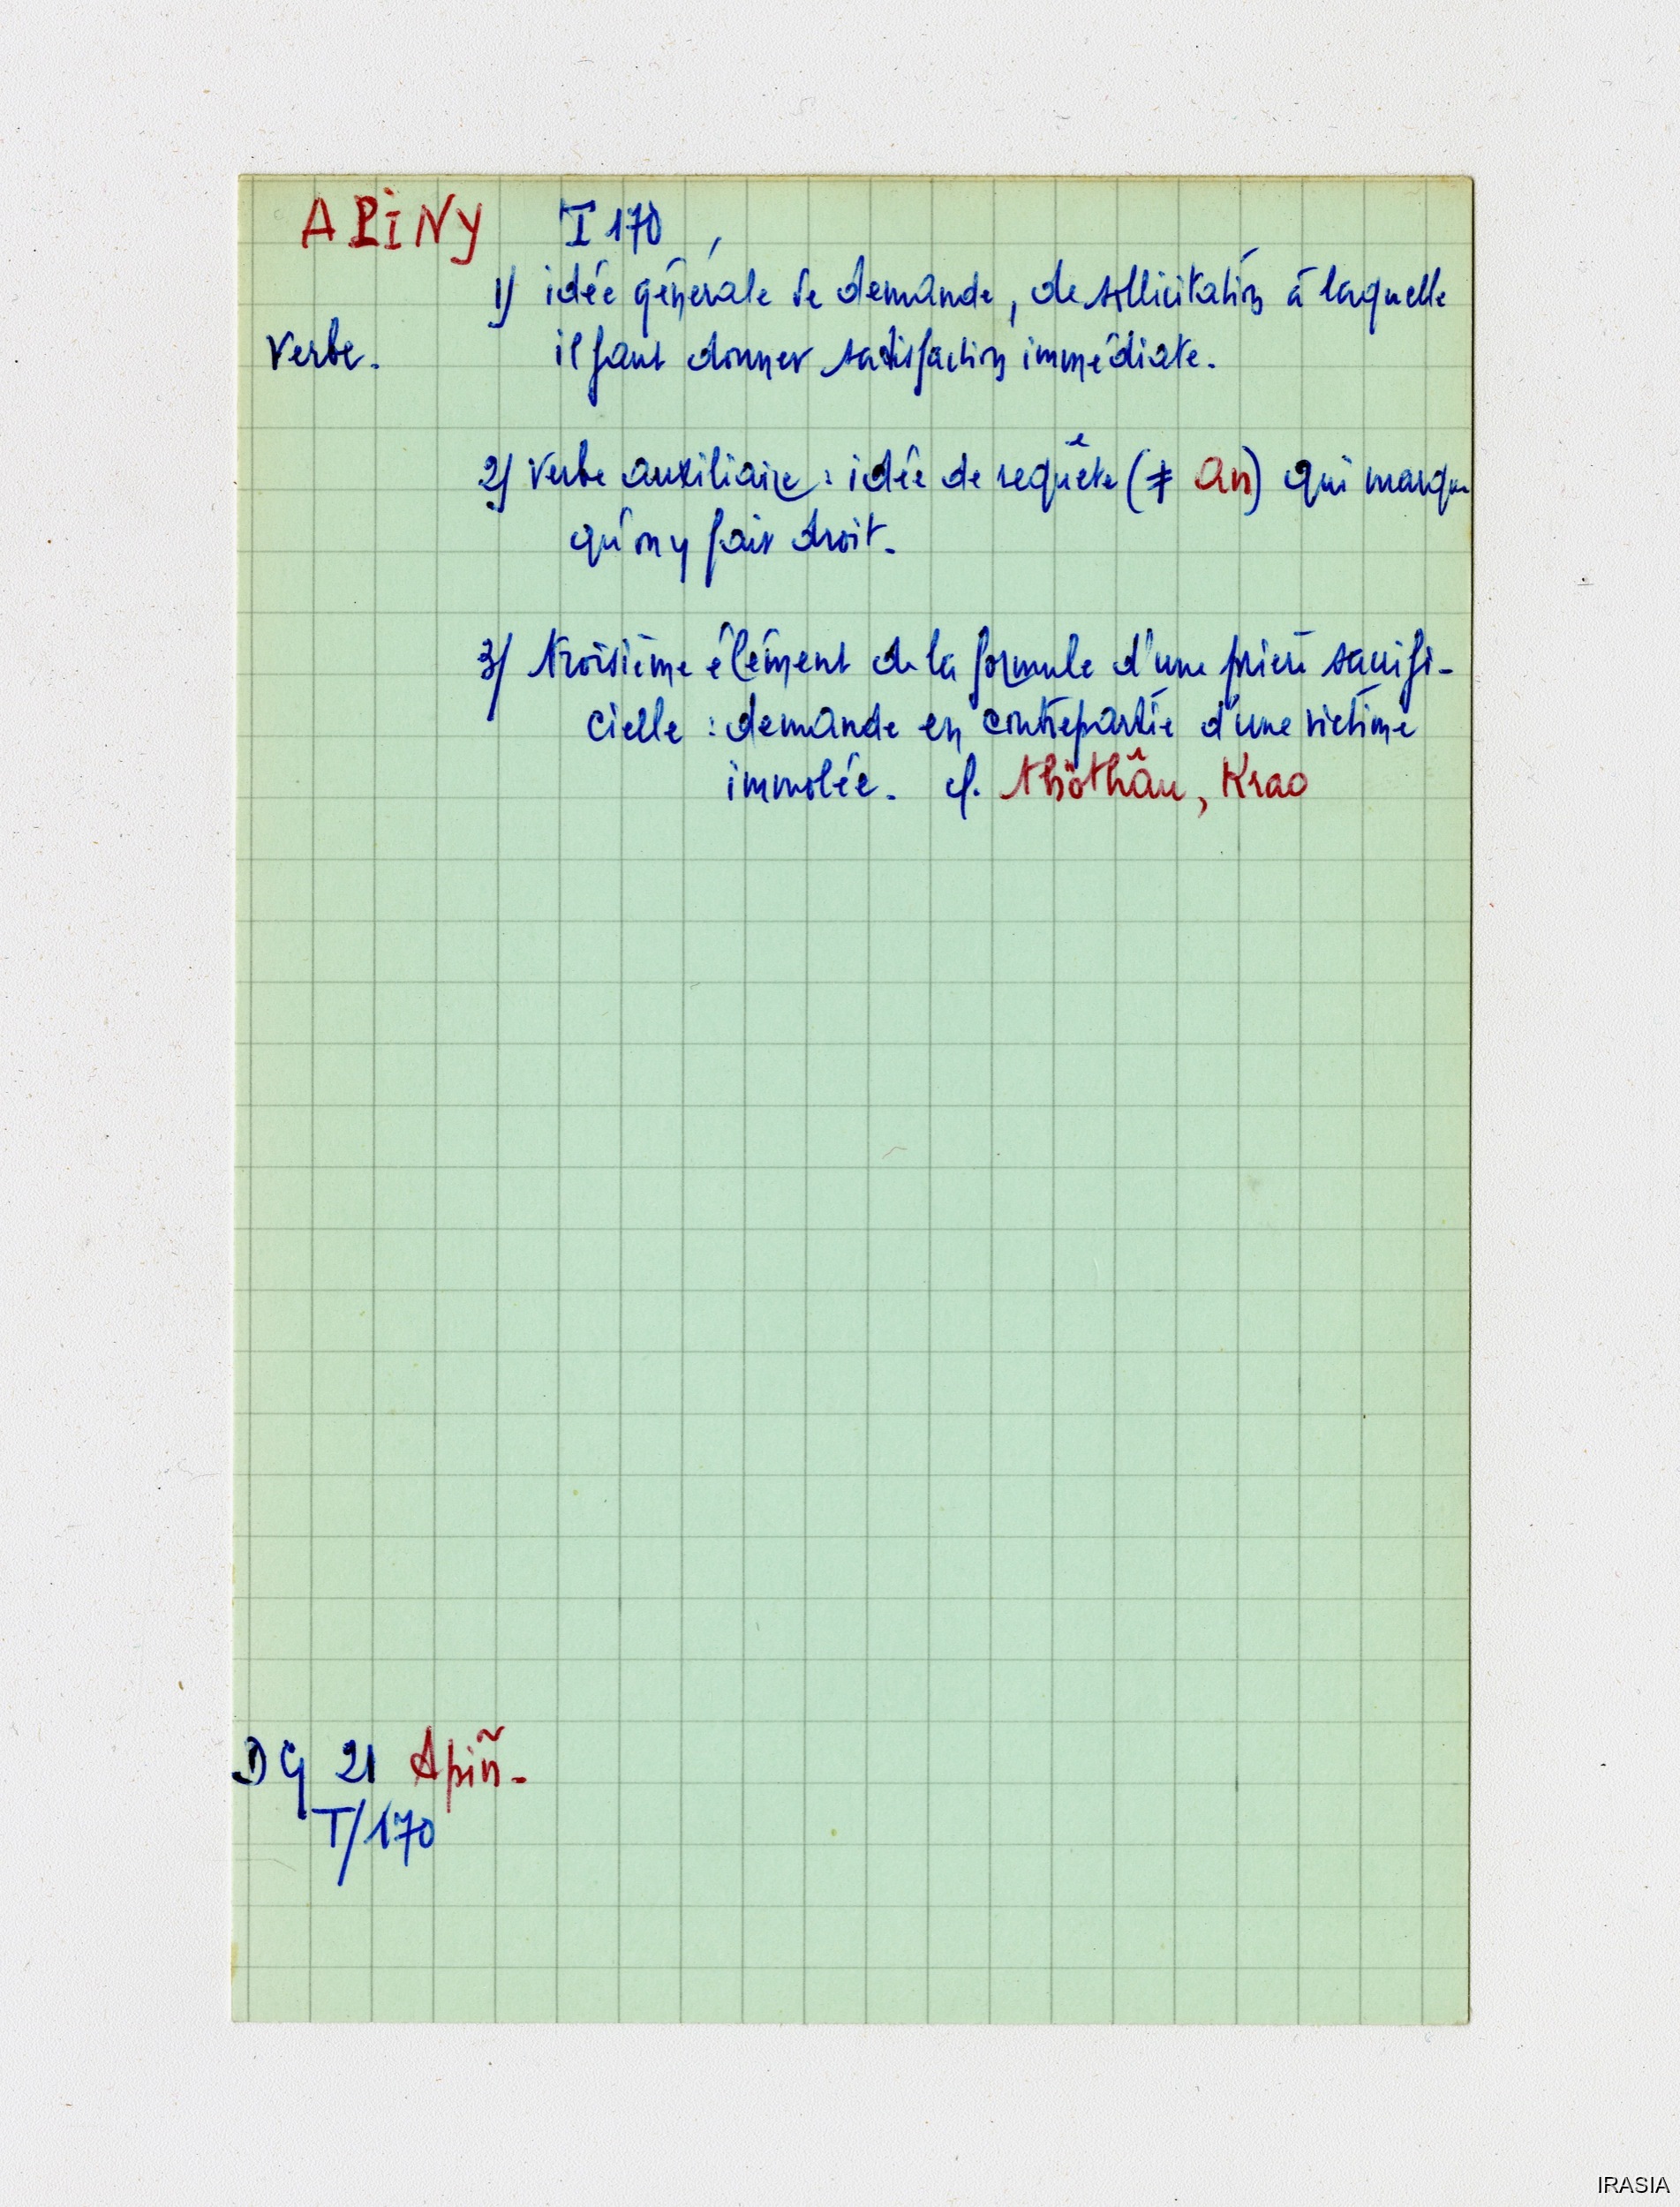 APINY I 170
1) idée générale de demande, de sollicitation à laquelle
Verbe. il faut donner satisfaction immédiate.
2) Verbe auxiliaire : idée de requête (≠ an) qui marque
qu'on y fait droit.
3) troisième élément de la formule d'une prière sacrifi-
cielle : demande en contrepartie d'une victime
immolée. cf. , Krao
DG 21 Apiñ.
T/170
IRASIA